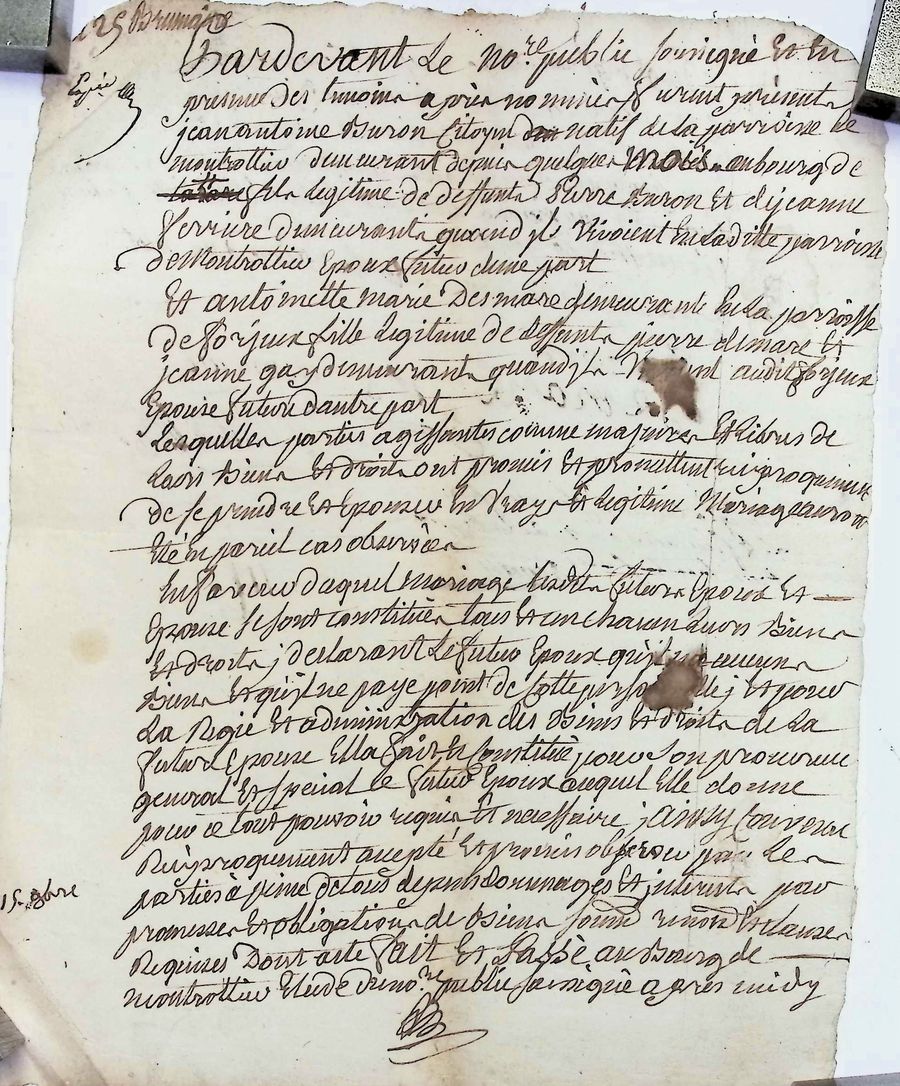 25 Brumaire
Pardevant Le no.re public soussigné Et En
Expédié
presence des temoins après nommés furent présents
jean antoine Buron Citoyen natif de la parroisse de
montrottier demeurant depuis quelques mois au bourg de
fils legitime de deffunts Pierre Buron Et de jeanne
ferriere demeurants quand ils vivoient En la ditte parroisse
de Montrottier Epoux futur d'une part
Et antoinette marie Desmare demeurante En la parroisse
de forjeux fille legitime de deffunts pierre demare Et
jeanne gay demeurants quand ils audit forjeux
Epouse future d'autre part
Lesquelles parties agissantes comme majeures Et libres de
Leurs Biens Et droits ont promis Et promettent reciproquement
de se prendre Et Epouser En vray Et legitime Mariage
Eté en pareil cas observées
En faveur duquel mariage lesdits futurs Epoux Et
Epouse se sont constitués tous Et un chacun Leurs Biens
Et droits ; declarant Le futur Epoux qu'il n'a aucuns
Biens Et qu'il ne paye point de cotte personnelle ; Et pour
La Regie Et administration des Biens Et droits de La
future Epouse Ella fait Et Constitué pour son procureur
general Et special le futur Epoux auquel Elle donne
pour ce tout pouvoir requis Et necessaire ; ainsy convenu
Reciproquement accepté Et promis observer par Les
parties à peine de tous depens dommages Et interets par
15. 9bre
promesses Et obligations de Biens soumis. renond. Et clauses
Requises Dont acte fait Et Passé au Bourg de
montrottier Etude du no.re public soussigné après midy